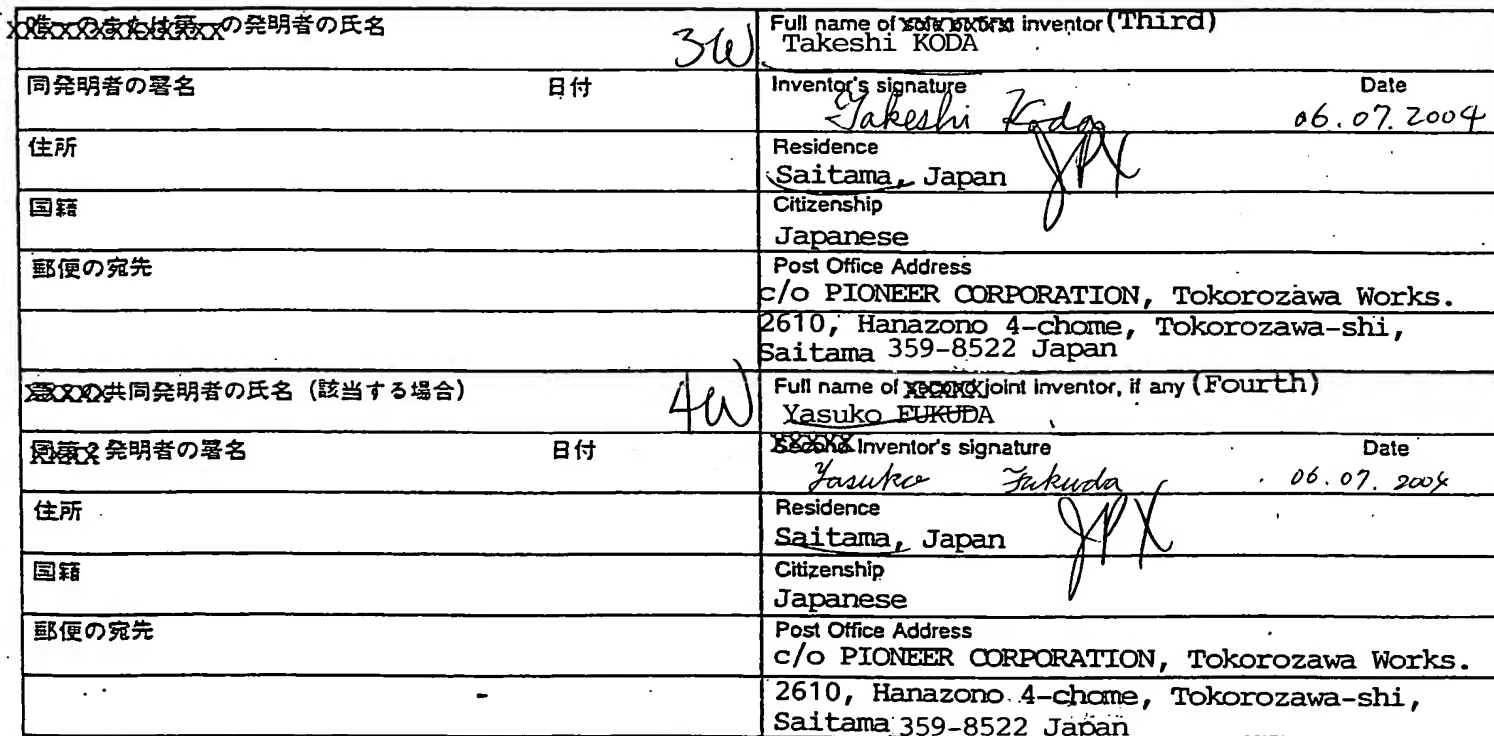 の発明者の氏名
Full name of inventor (Third)
Takeshi KODA
同発明者の署名 日付
Inventor's signature Date
Takeshi Koda 06.07.2004
住所
Residence
Saitama, Japan JPX
国籍
Citizenship
Japanese
郵便の宛先
Post Office Address
c/o PIONEER CORPORATION, Tokorozawa Works.
2610, Hanazono 4-chome, Tokorozawa-shi,
Saitama 359-8522 Japan
共同発明者の氏名 (該当する場合)
Full name of joint inventor, if any (Fourth)
Yasuko FUKUDA
発明者の署名 日付
Inventor's signature Date
Yasuko Fukuda 06.07.2004
住所
Residence
Saitama, Japan JPX
国籍
Citizenship
Japanese
郵便の宛先
Post Office Address
c/o PIONEER CORPORATION, Tokorozawa Works.
2610, Hanazono 4-chome, Tokorozawa-shi,
Saitama 359-8522 Japan